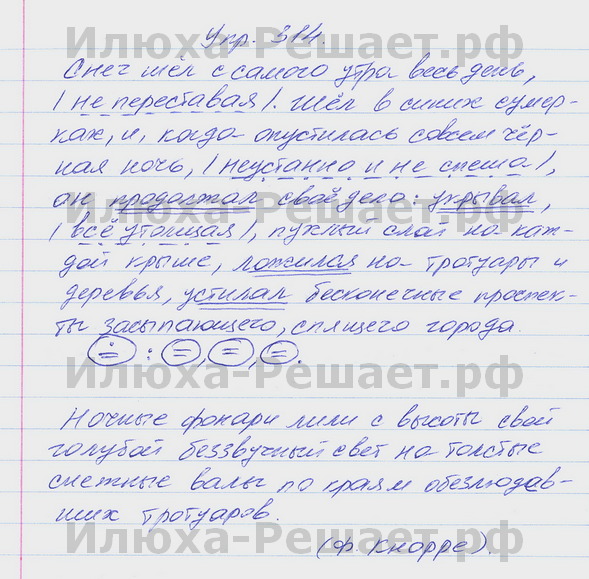 Илюха-Решает.рф
Упр. 314.
Снег шёл с самого утра весь день,
| не переставая |. Шёл в синих сумер-
ках, и, когда опустилась совсем чёр-
ная ночь, | неустанно и не спеша |,
он продолжал своё дело: укрывал,
| всё утолщая |, пухлый слой на каж-
дой крыше, ложился на тротуары и
деревья, устилал бесконечные проспек-
ты засыпающего, спящего города.
Илюха-Решает.рф
Ночные фонари лили с высоты свой
голубой беззвучный свет на толстые
снежные валы по краям обезлюдев-
ших тротуаров.
(Ф. Кнорре).
Илюха-Решает.рф